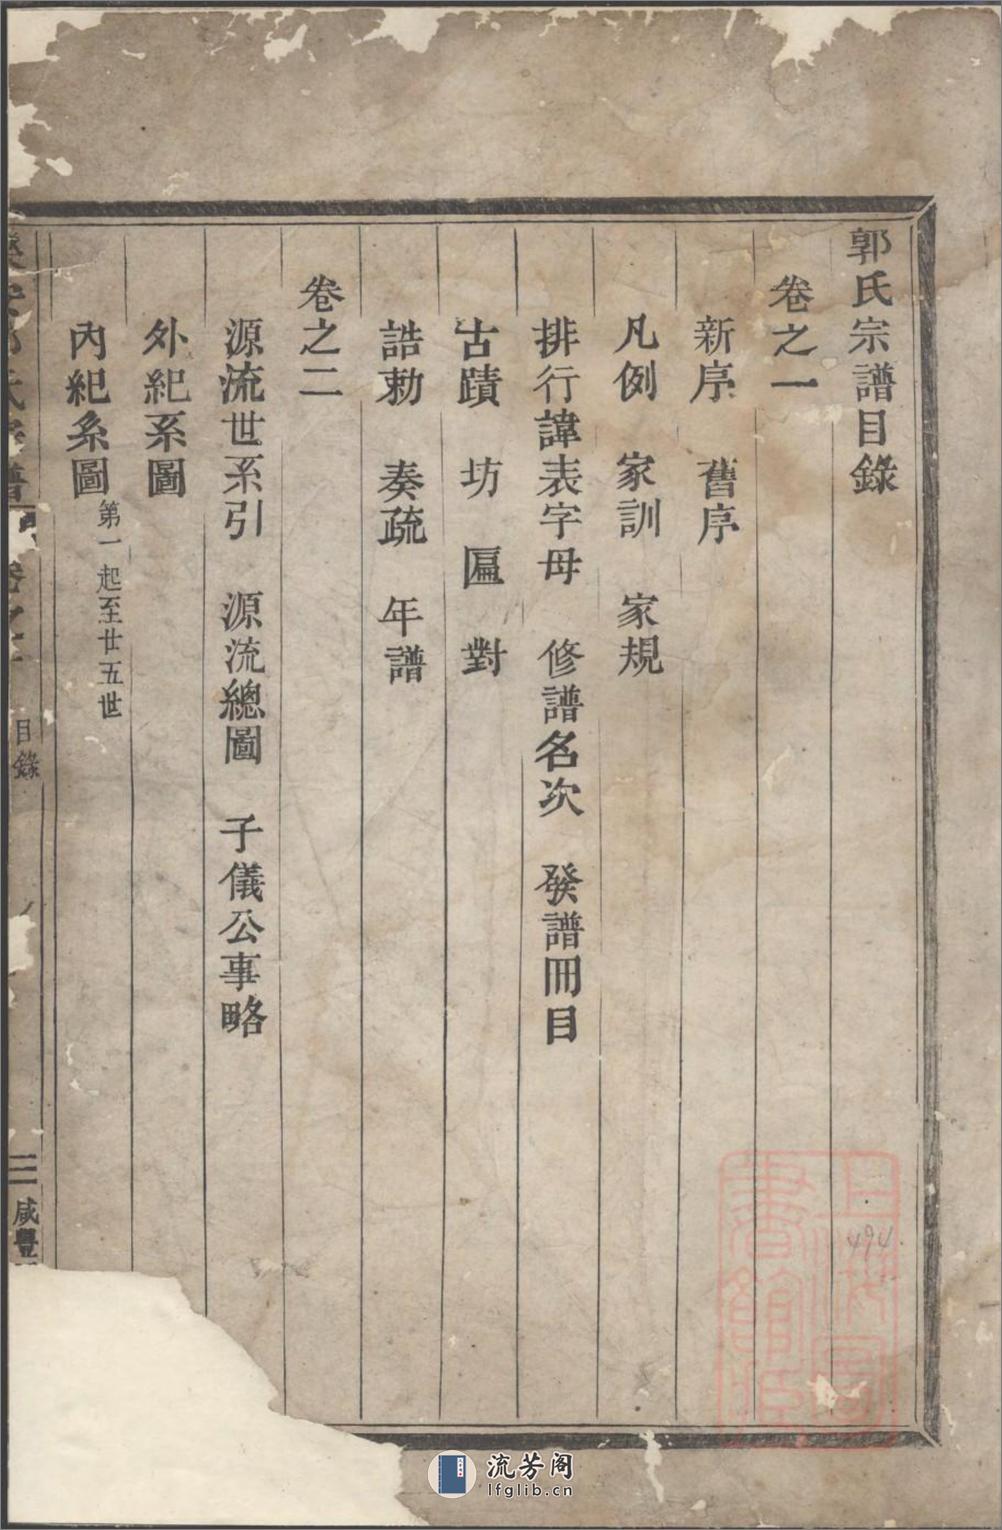 郭氏宗譜目錄
卷之一
新序 舊序
凡例 家訓 家規
排行諱表字母 修譜名次 發譜冊目
古蹟 坊 匾 對
誥勅 奏疏 年譜
卷之二
源流世系引 源流總圖 子儀公事略
外紀系圖
內紀系圖 第一起至廿五世
氏宗譜 卷之 目錄 三 咸豐
上海圖書館藏
494
流芳阁
lfglib.cn